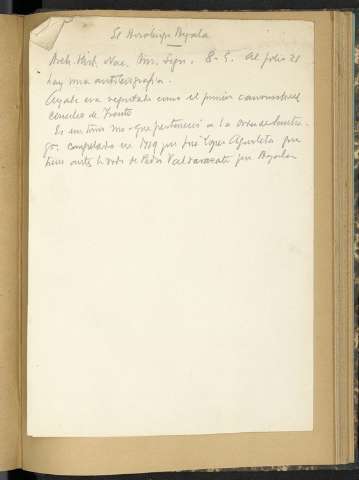 El Arzobispo Ayala
Arch. Hist. Nac. Ms. Sign. B-5. Al folio 21
hay una autobiografía.
Ayala era reputado como el primer canonista del
concilio de Trento
Es un tomo ms. que perteneció a la Orden de Santia-
go, compilado en 1719 por José López Agurleta
tiene ante la vida de Pedro por Ayala